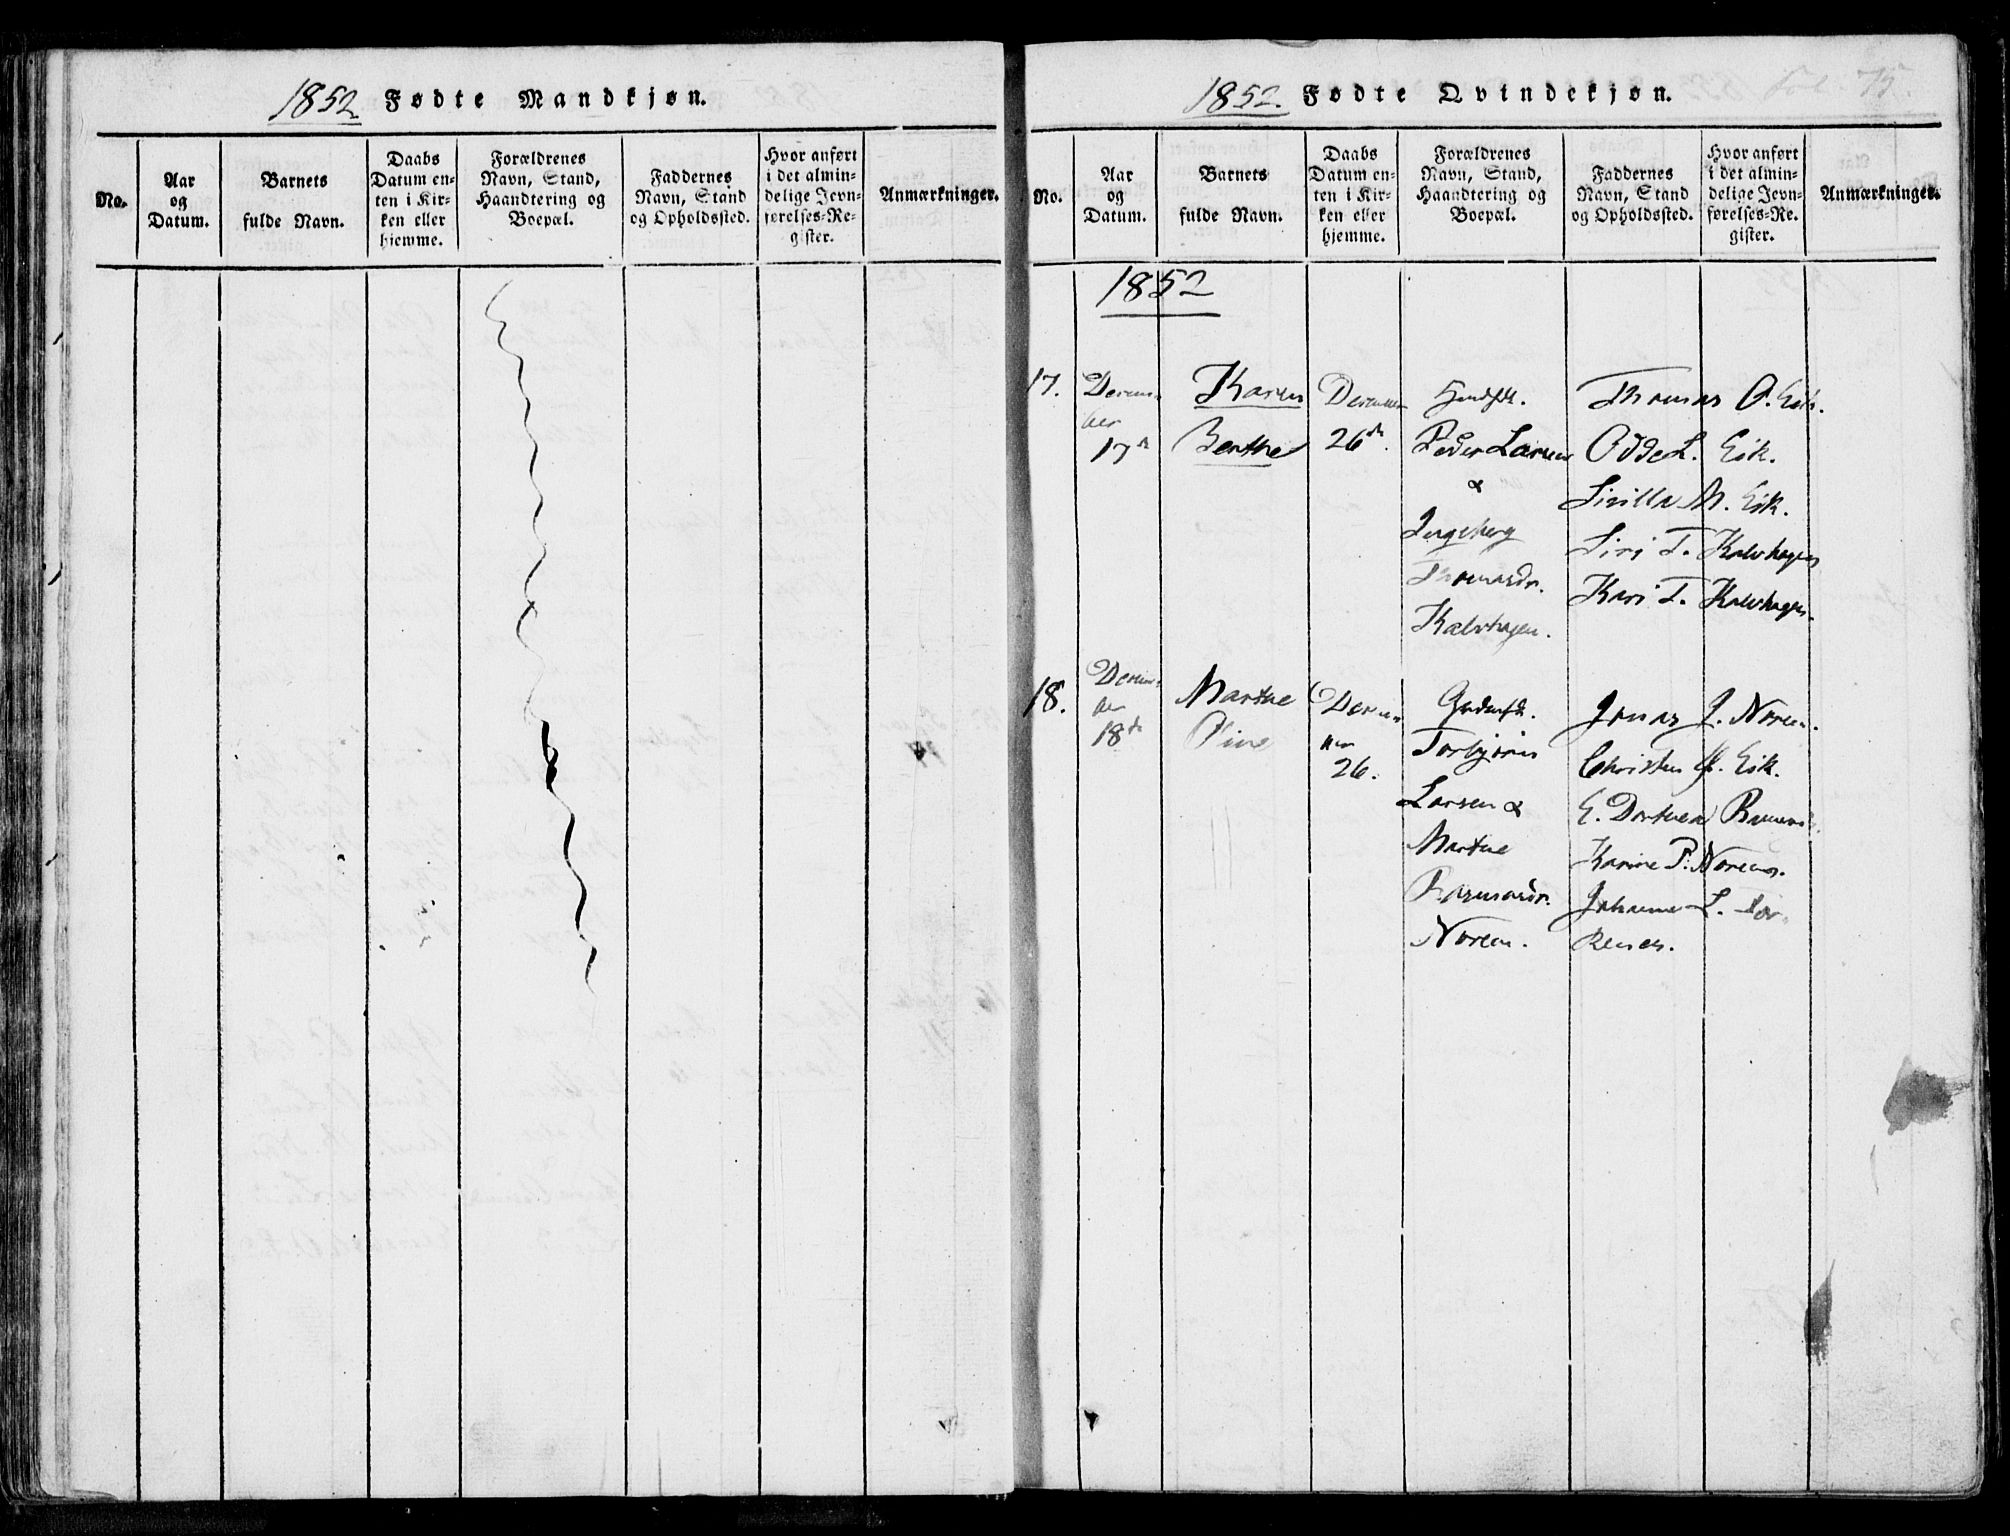 1852 Fødte Mandkjøn.
No.
Aar
og
Datum.
Barnets
fulde Navn.
Daabs
Datum en-
ten i Kir-
ken eller
hjemme.
Forældrenes
Navn, Stand,
Haandtering og
Boepæl.
Faddernes
Navn, Stand
og Opholdssted.
Hvor anført
i det almin-
delige Jevn-
førelses-Re-
gister.
Anmærkninger.
1852. Fødte Qvindekjøn.
Fol. 75.
No.
Aar
og
Datum.
Barnets
fulde Navn.
Daabs
Datum en-
ten i Kir-
ken eller
hjemme.
Forældrenes
Navn, Stand,
Haandtering og
Boepæl.
Faddernes
Navn, Stand
og Opholdssted.
Hvor anført
i det almin-
delige Jevn-
førelses-Re-
gister.
Anmærkninger.
1852
17.
Decem-
ber
17de
Karen
Berthe
December
26de.
Peder Larsen
&
Ingeborg
Thomasdr.
Kalvhagen.
Thomas O. Eik.
Odde L. Eik.
Sisilla M. Eik.
Siri T. Kalvhagen
Kari T. Kalvhagen.
18.
Decem-
ber
18de
Marthe
Oline
Decem-
ber
26.
Torbjørn
Larsen &
Marthe
Rasmusdr.
Noreen.
Jonas J. Noreen.
Christen Eik.
E. Dorthea
Karine P. Noreen.
Johanne L. Tor-